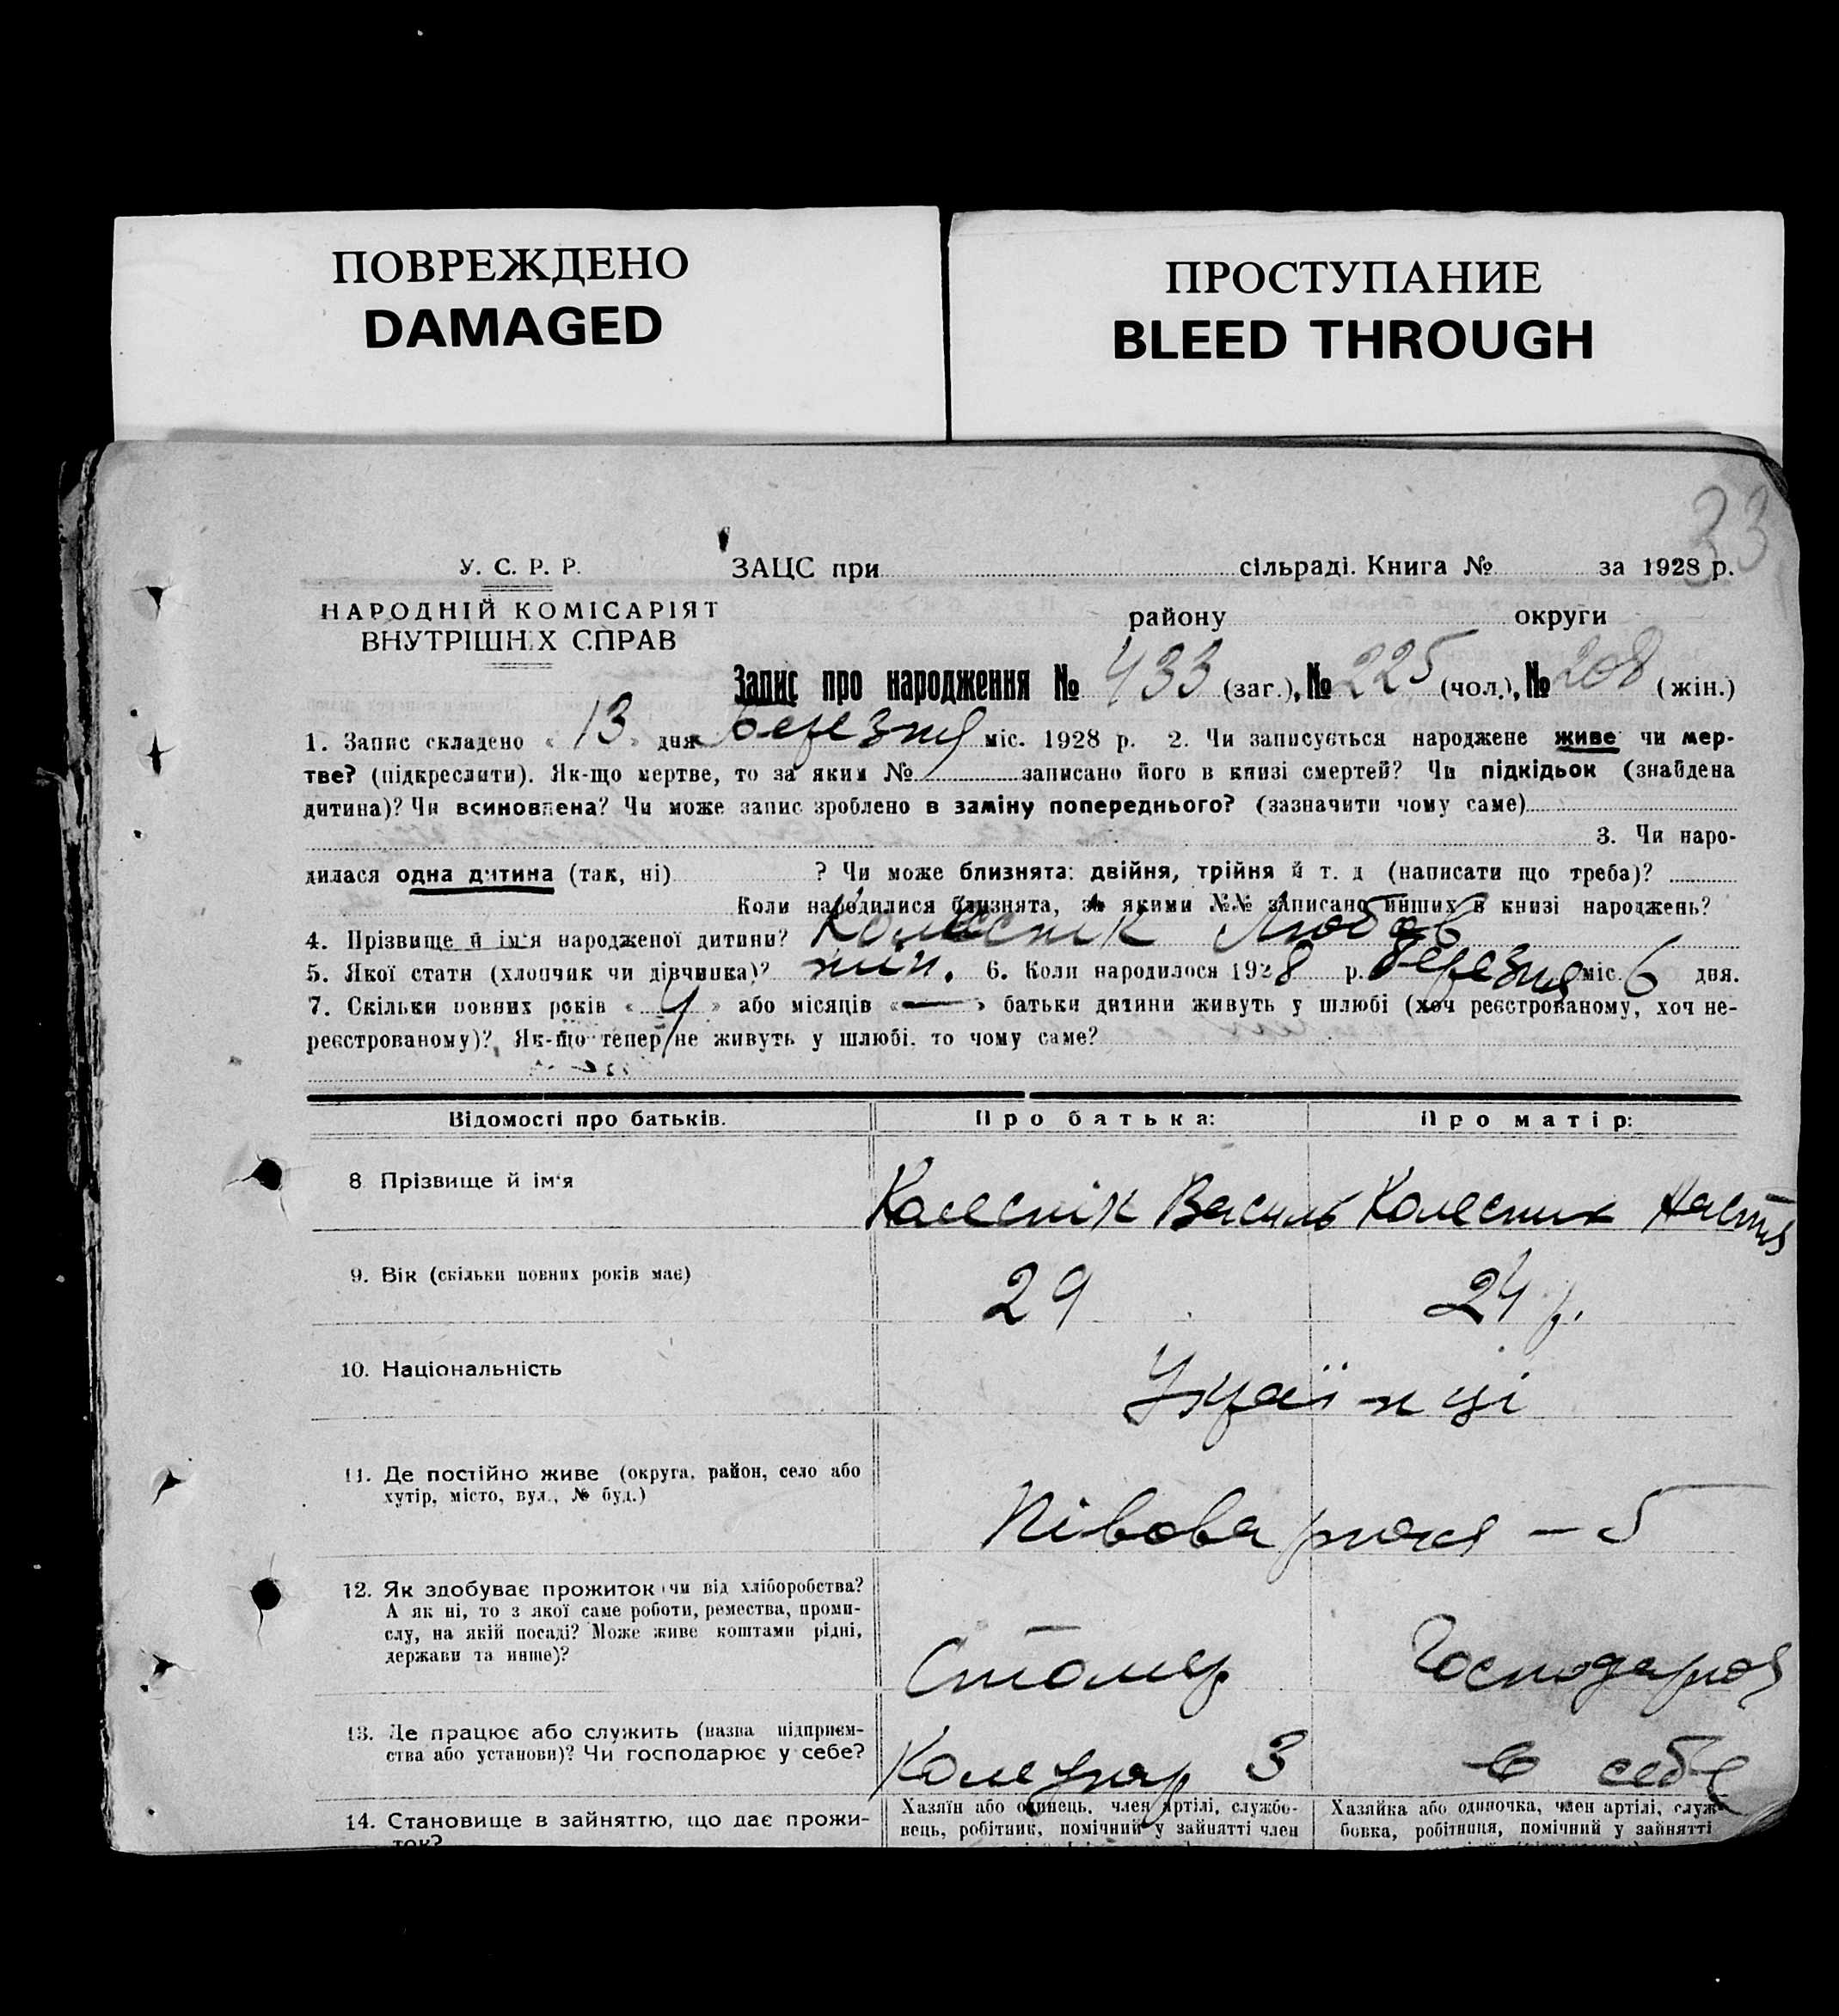 ПОВРЕЖДЕНО
DAMAGED
ПРОСТУПАНИЕ
BLEED THROUGH
33
У. С. Р. Р.
НАРОДНІЙ КОМІСАРІЯТ
ВНУТРІШНІХ СПРАВ
ЗАЦС при сільраді. Книга № за 1928 р.
району округи
Запис про народження № 433 (заг.), № 225 (чол.), № 208 (жін.)
1. Запис складено « 13 » дня Березня міс. 1928 р. 2. Чи записується народжене живе чи мер-
тве? (підкреслити). Як-що мертве, то за яким № записано його в книзі смертей? Чи підкідьок (знайдена
дитина)? Чи всиновлена? Чи може запис зроблено в заміну попереднього? (зазначити чому саме)
3. Чи наро-
дилася одна дитина (так, ні) ? Чи може близнята: двійня, трійня й т. д (написати що треба)?
Коли народилися близнята, за якими №№ записано инших в книзі народжень?
4. Прізвище й ім'я народженої дитини? Колеснік Любов
5. Якої стати (хлопчик чи дівчинка)? жін. 6. Коли народилося 1928 р. Березня міс. 6 дня.
7. Скільки повних років « » або місяців « — » батьки дитини живуть у шлюбі (хоч реєстрованому, хоч не-
реєстрованому)? Як-що тепер не живуть у шлюбі, то чому саме?
Відомості про батьків.
Про батька:
Про матір:
8 Прізвище й ім'я
Колеснік Василь
Колесник Настя
9. Вік (скільки повних років має)
29
24 р.
10. Національність
Українці
11. Де постійно живе (округа, район, село або
хутір, місто, вул., № буд.)
Півоварная – 5
12. Як здобуває прожиток чи від хліборобства?
А як ні, то з якої саме роботи, ремества, проми-
слу, на якій посаді? Може живе коштами рідні,
держави та инше)?
Столяр
Господарня
13. Де працює або служить (назва підприєм-
ства або установи)? Чи господарює у себе?
3
в себе
14. Становище в зайняттю, що дає прожи-
ток?
Хазяїн або одинець, член артілі, службо-
вець, робітник, помічний у зайнятті член
Хазяйка або одиночка, член артілі, служ-
бовка, робітниця, помічний у зайнятті